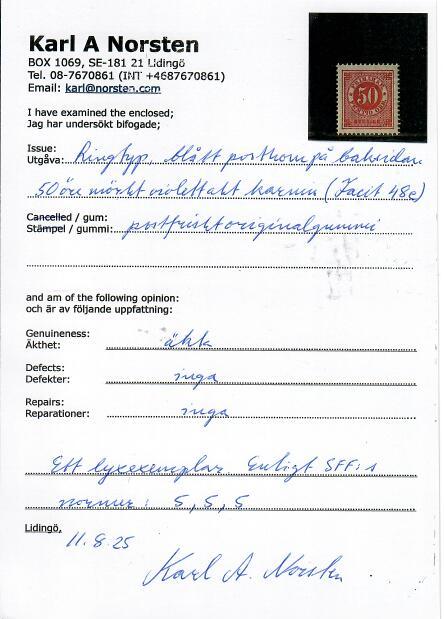 Karl A Norsten
BOX 1069, SE-181 21 Lidingö
Tel. 08-7670861 (INT +4687670861)
Email: karl@norsten.com
50
I have examined the enclosed;
Jag har undersökt bifogade;
Issue:
Utgåva: Ringtyp, blått posthorn på baksidan
50 öre mörkt violettakt karmin (Facit 48e)
Cancelled / gum:
Stämpel / gummi: postfriskt originalgummi
and am of the following opinion:
och är av följande uppfattning:
Genuineness:
Äkthet: äkta
Defects:
Defekter: inga
Repairs:
Reparationer: inga
Ett lyxexemplar. Enligt SFF:s
normer: 5, 5, 5
Lidingö,
11.8.25
Karl A. Norsten